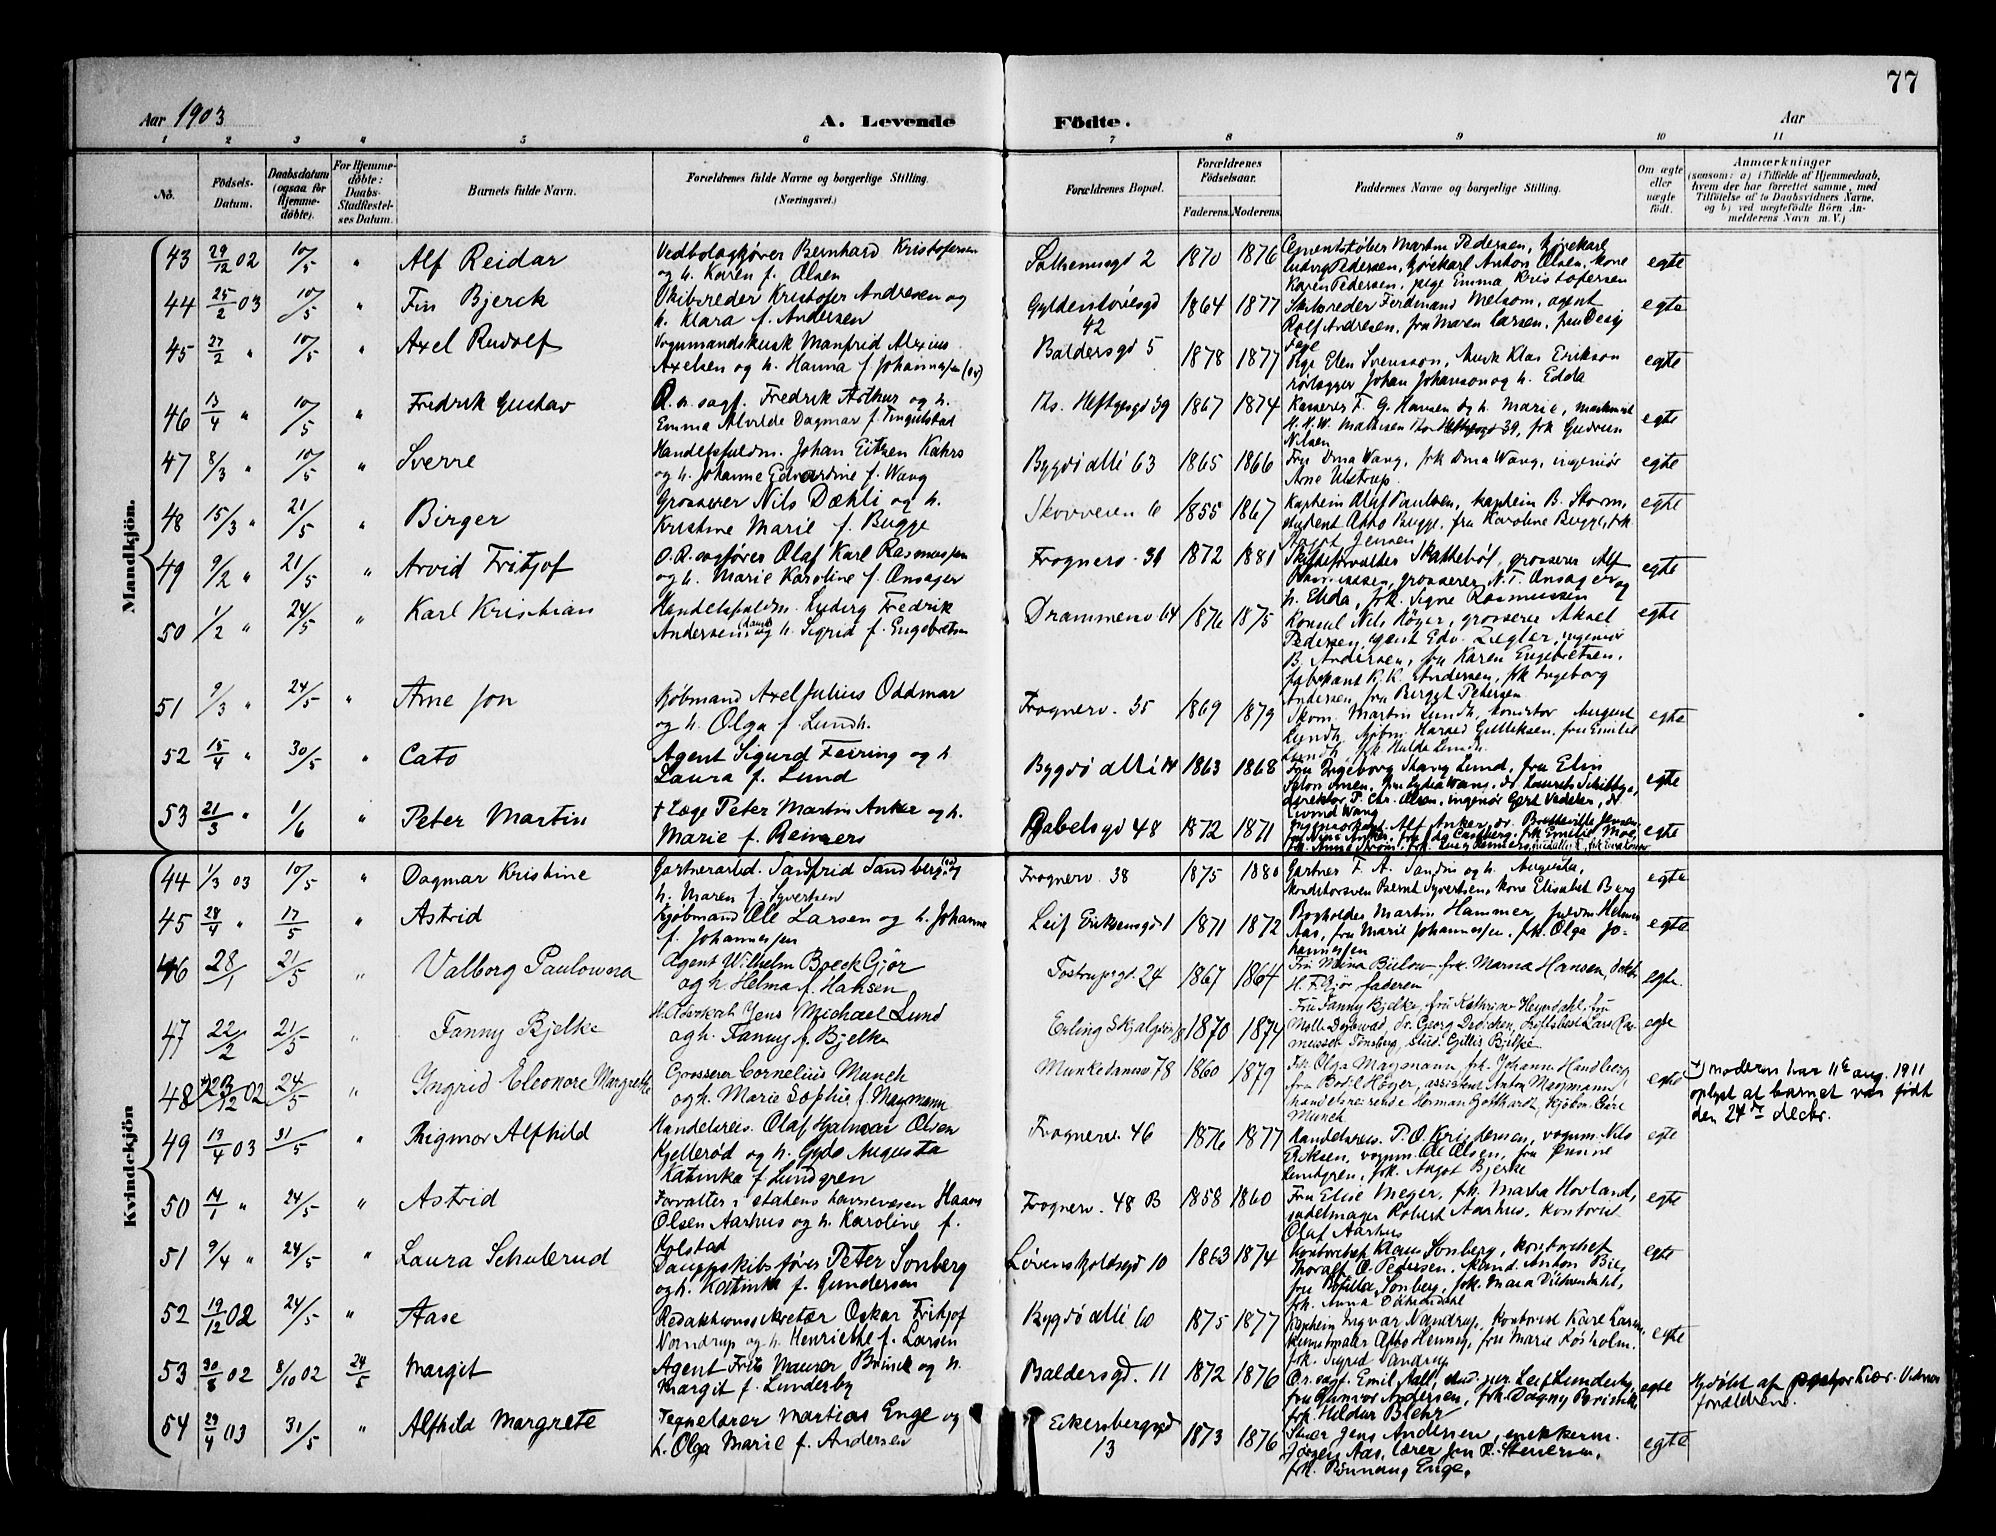 77
Aar 1903
A. Levende Födte.
Aar
1 2 3 4 5 6 7 8 9 10 11
No. Födsels-Datum. Daabsdatum (ogsaa for Hjemmedöbte). For Hjemmedöbte: Daabs-Stadfæstelses Datum. Barnets fulde Navn. Forældrenes fulde Navne og borgerlige Stilling. (Næringsvei.) Forældrenes Bopæl. Forældrenes Födselsaar. Faderens. Moderens. Faddernes Navne og borgerlige Stilling. Om ægte eller uægte födt. Anmærkninger
(saasom: a) i Tilfælde af Hjemmedaab, hvem der har forrettet samme, med Tilföielse af to Daabsvidners Navne, og b) ved uægtefödte Börn Anmelderens Navn m. V.)
Mandkjön.
43 29/12 02 10/5 " Alf Reidar Vedbolagkjører Bernhard Kristofersen
og h. Karen f. Olsen 2 1870 1876 Cementstøber Martin Pedersen, kjørekarl
Ludvig Pedersen, kjørekarl Anton Olsen, kone
Karen Pedersen, pige Emma Kristofersen egte
44 25/2 03 10/5 " Fin Bjerck Skibsreder Kristofer Andresen og
h. Klara f. Andersen Gyldenløvesgd 42 1864 1877 Skibsreder Ferdinand Melsom, agent
Rolf Andresen, fru Maren Larsen, egte
45 27/2 " 10/5 " Axel Rudolf Vognmandskusk Manfrid Alexius
Axelsen og h. Hanna f. Johannessen Baldersgd 5 1878 1877 Pige Elen Svensson, Klas Erikson
rørlægger Johan Johanson og h. Edda egte
46 13/4 " 10/5 " Fredrik Gustav O.r. sagf. Fredrik Arthur og h.
Emma Alvilde Dagmar f. Tingulstad Th. Heftyesgd 39 1867 1874 Kasserer F. G. Hansen og h. Marie,
H. H. W. Mathisen 39, frk Gudrun
Nilsen egte
47 8/3 " 10/5 " Sverre Handelsfuldm. Johan Eitzen Kahrs
og h. Johanne Edvardine f. Wang Bygdø allé 63 1865 1866 Fru Dina Wang, frk Dina Wang, ingeniør
Arne Ulstrup. egte
48 15/3 " 21/5 " Birger Grosserer Nils Dæhli og h.
Kristine Marie f. Bugge Skovveien 6 1855 1867 Kaptein Olaf Paulsen, kaptein B. Storm,
student Otto Bugge, fru Karoline Bugge, frk
Jensen egte
49 9/2 " 21/5 " Arvid Fritjof O.R. sagfører Olaf Karl Rasmussen
og h. Marie Karoline f. Onsager Frognerv. 39 1872 1881 Skifteforvalter Skattebøl, grosserer Alf
Rasmussen, grosserer N. T. Onsager og
h. Elida, frk. Signe Rasmussen egte
50 1/2 " 24/5 " Karl Kristian Handelsfuldm. Ludvig Fredrik
Andersen og h. Sigrid f. Engebretsen Drammensv 64 1876 1875 Konsul Nils Høyer, grosserer Aksel
Pedersen, agent Edv. Ziegler, ingeniør
B. Andersen, fru Karen Engebretsen,
fabrikant K. K. Andersen, frk Ingeborg
Andersen, fru Birgit Petersen egte
51 9/3 " 24/5 " Arne Jon Kjøbmand Axel Julius Oddmar
og h. Olga f. Lundh. Frognerv. 35 1869 1879 Skom. Martin Lundh, kontorist August
Lundh, kjøbm. Harald Gulliksen, fru Emilie
Lundh, frk Hulda Lundh. egte
52 15/4 " 30/5 " Cato Agent Sigurd Feiring og h.
Laura f. Lund Bygdø allé 14 1863 1868 Fru Ingeborg Stang Lund, fru Elin
fru Lydia Wang, dr Laurits Schibbye,
direktør P. Chr. Olsen, ingeniør Gert Vedeler, dr
Eivind Wang egte
53 21/3 " 1/6 " Peter Martin † Læge Peter Martin Anker og h.
Marie f. Reimers Gabelsgd 48 1872 1871 Alf Anker, dr. Jensen
fru Nini Anker, fru Ida Castberg, frk Emilie Moe,
frk. Anna egte
Kvindekjön
44 1/3 03 10/5 " Dagmar Kristine Gartnerarbd. Sanfrid Sandberg og
h. Maren f. Syvertsen Frognerv. 38 1875 1880 Gartner F. A. Sandin og h. Augusta,
Bernt Syvertsen, kone Elisabet Berg egte
45 28/4 " 17/5 " Astrid Kjøbmand Ole Larsen og h. Johanne
f. Johannessen Leif Eriksensgd 1 1871 1872 Bogholder Martin Hammer, fuldm Helmer
Aas, fru Marie Johannessen, frk. Olga Jo-
hannessen egte
46 28/1 21/5 " Valborg Paulowna Agent Wilhelm Boeck Gjør
og h. Helma f. Hansen Tostrupsgd. 24 1867 1864 Fru Mina Bülow, frk. Marna Hansen,
H. F. Gjør faderen egte.
47 22/2 21/5 " Fanny Bjelke H. Advokat Jens Michael Lund
og h. Fanny f. Bjelke Erling Skjalgsøns 8 1870 1874 Fru Fanny Bjelke, fru Kathrine Heyerdahl, fru
Georg Lars Ras-
mussen Tønsberg, stud. Gillis Bjelke egte
48 23/12 02 24/5 " Ingrid Eleonore Margrethe Grosserer Cornelius Munch
og h. Marie Sophie f. Magmann Munkedamsv 78 1860 1879 Fr. Olga Magmann, frk. Johanne Handberg,
fru Bodil Høyer, assistent Anton Magmann,
handelsreisende Herman Gotthardt, kjøbm. Care
Munch egte ⁎) moderen har 11te aug. 1911
oplyst at barnet var født
den 24de decbr.
49 19/4 03 31/5 " Rigmor Alfhild Handelsreis. Olaf Hjalmar Olsen
Kjellerød og h. Gyda Augusta
Katinka f. Lundgren Frognerv. 46 1876 1877 Handelsreis. P. O. Kristensen, vognm. Nils
Eriksen, vognm. Ole Olsen, fru
Lundgren, frk. Aagot Bjerke egte
50 14/1 " 24/5 " Astrid Forvalter i statens havnevæsen Haans
Olsen Aarhus og h. Karoline f.
Kolstad Frognerv. 48 B 1858 1860 Fru Elise Meyer, frk. Marta Hovland,
sadelmager Robert Aarhus, kontorist
Olaf Aarhus egte
51 9/4 " 24/5 " Laura Schulerud Dampskibsfører Peter Sonberg
og h. Katinka f. Gundersen Løvenskjoldsgd 10 1863 1874 Kontorchef Klaus Sonberg, kontorchef
Thoralf O. Pedersen, Anton Bie,
fru Sonberg, frk. Mara
frk. Anna egte
52 19/12 02 24/5 " Aase Redaktionssekretær Oskar Fritjof
Nandrup og h. Henriette f. Larsen Bygdø allé 60 1875 1877 Kaptein Ingvar Nandrup, kontorist Kare Larsen,
kunstmaler Otto Hennig, fru Marie Rosholm,
frk. Sigrid Nandrup egte
53 30/8 02 8/10 02 24/5 Margit Agent Fritz Maurer Brinck og h.
Margit f. Lunderby Baldersgd. 11 1872 1876 Or. sagf. Emil Hall, stud. jur. Leif Lunderby,
fru Gunvor Andersen, frk. Dagny
frk. Hildur Blehr egte Hjdøbt af pastor Kiær. Vidner
forældrene.
54 29/4 03 31/5 " Alfhild Margrete Tegnelærer Martias Enge og
h. Olga Marie f. Andersen Eckersbergsgd 13 1873 1876 Jens Andersen, snekkerm.
Jørgen Aas, lærer Jon R. Stenersen,
frk. Rønnaug Enge. egte